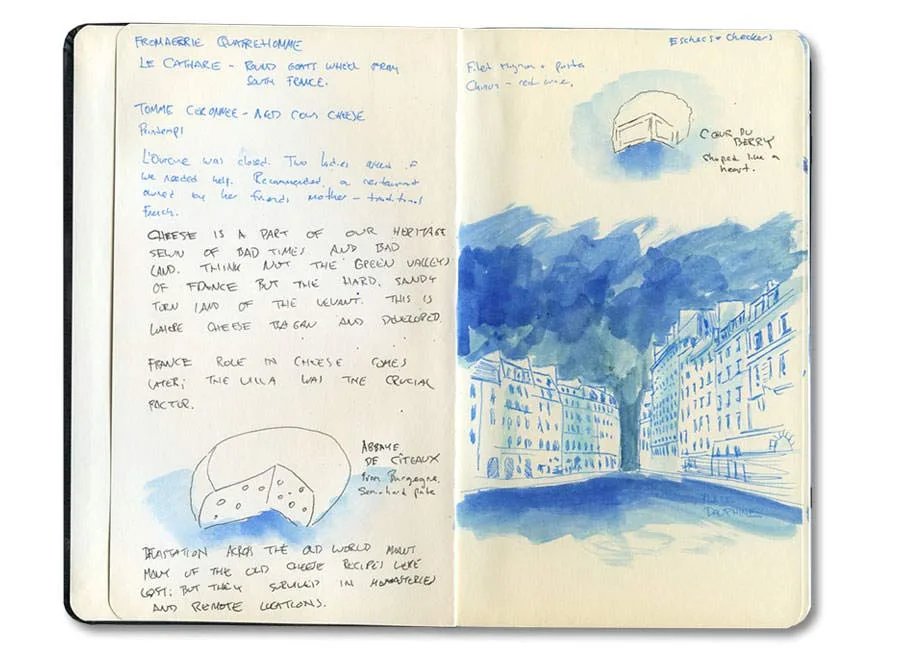 FROMAGERIE QUATREHOMME
LE CATHARE - ROUND GOATS WHEEL FROM
SOUTH FRANCE.
TOMME CERONNEE - AGED COW CHEESE
Printemps
L'Ourcine was closed. Two ladies asked if
we needed help. Recommended a restaurant
owned by her friends mother - traditional
French.
CHEESE IS A PART OF OUR HERITAGE
SEWN OF BAD TIMES AND BAD
LAND. THINK NOT THE GREEN VALLEYS
OF FRANCE BUT THE HARD, SANDY
TORN LAND OF THE LEVANT. THIS IS
WHERE CHEESE BEGAN AND DEVELOPED
FRANCE ROLE IN CHEESE COMES
LATER; THE VILLA WAS THE CRUCIAL
FACTOR.
ABBAYE
DE CÎTEAUX
from Burgogne.
Semi-hard pâte
DEVASTATION ACROSS THE OLD WORLD MEANT
MANY OF THE OLD CHEESE RECIPES WERE
LOST; BUT THEY SURVIVED IN MONASTERIES
AND REMOTE LOCATIONS.
Eschecs + Checkers
Filet Mignon + pasta
Chinon - red wine.
COEUR DU
BERRY
shaped like a
heart.
PLACE
DAUPHINE